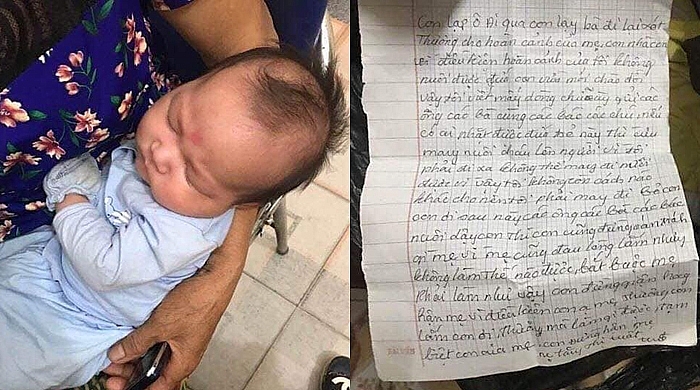 Con lạp Ô Đi qua con lạy bà đi lại xót
Thương cho hoàn cảnh của mẹ con nhà con
vì điều kiện hoàn cảnh của tôi không
nuôi được đứa con vừa mới chào đời
vậy tôi viết mấy dòng chữ này gửi các
ông các Bà cùng các bác các chú nếu
có ai nhặt được đứa trẻ này thì cưu
mang nuôi cháu lớn người vì tôi
phải đi xa không thể mang đi nuôi
được vì vậy tôi không còn cách nào
khác cho nên tôi phải
con đi sau này các ông các Bà các Bác
nuôi dậy con thì con cũng đừng oán trách
gì mẹ vì mẹ cũng đau lòng lắm nhưng
không làm thế nào được, bắt buộc mẹ
Phải làm như vậy con đừng giận
hận mẹ vì điều kiện con ạ mẹ thương con
lắm con ơi Thương mà làm gì được tạm
biệt con của mẹ con đừng hận mẹ